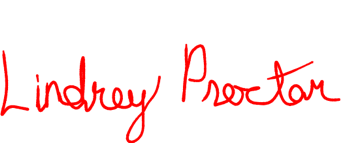 Lindrey Proctor